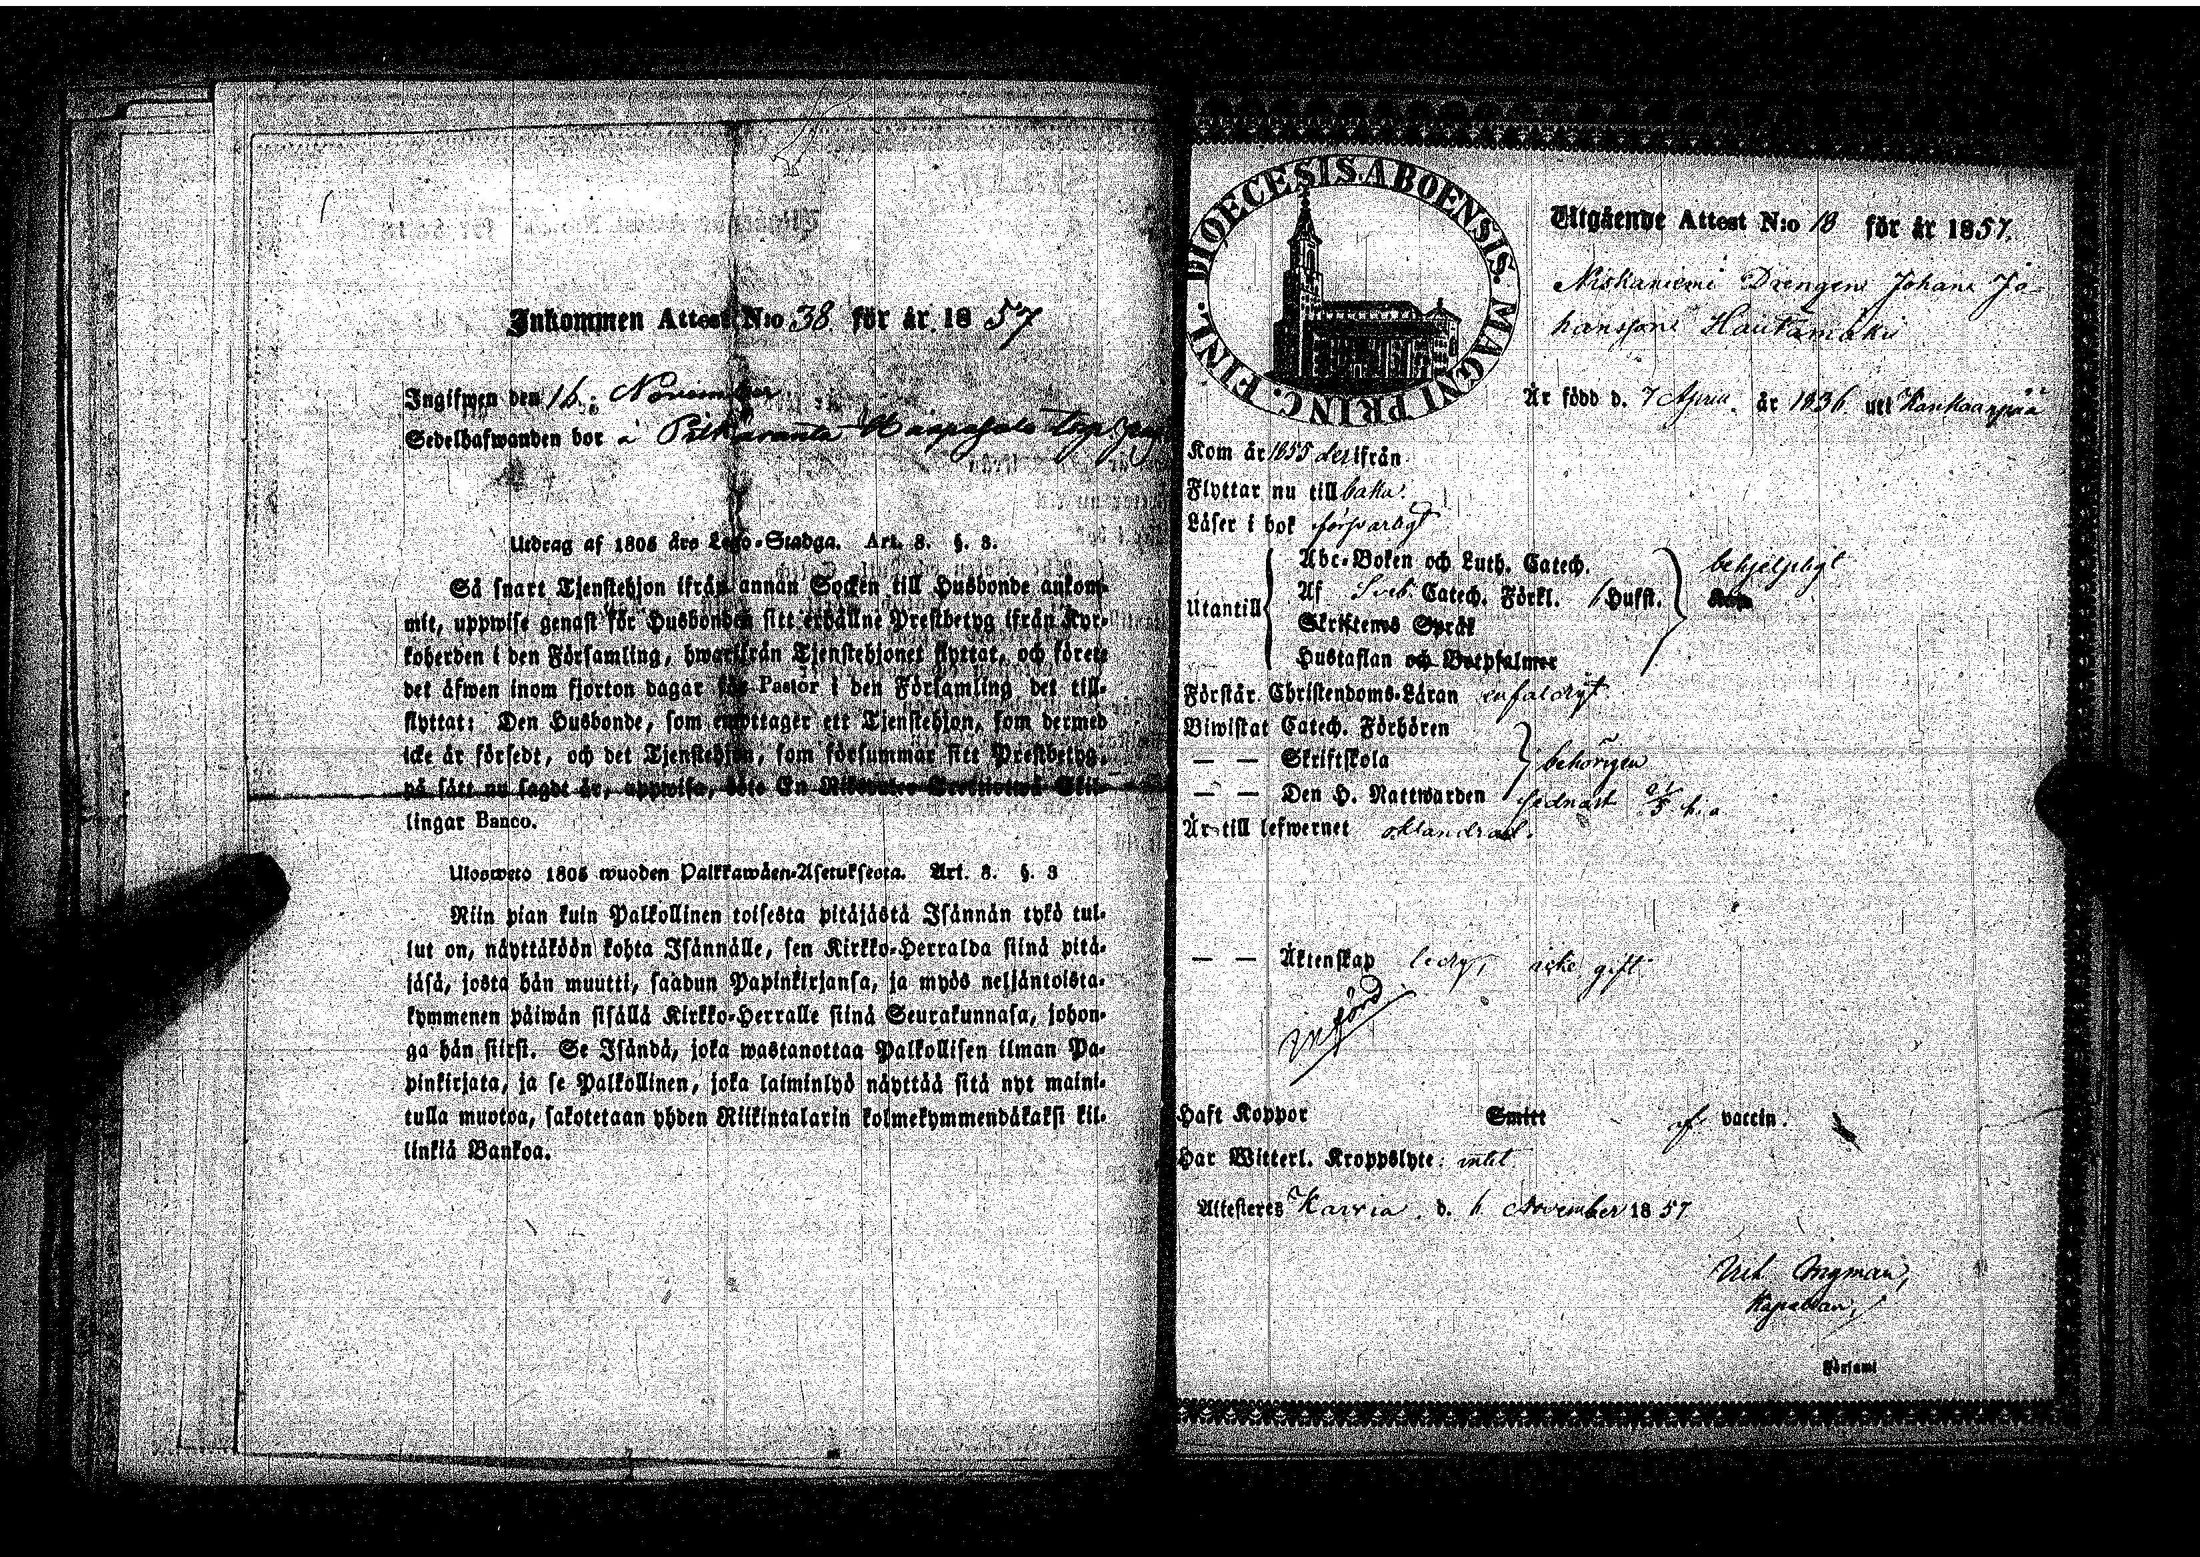 Inkommen Attest N:o 38 för år 1857
Ingifwen den 16 November
Sedelhafwanden bor å
Utdrag af 1805 års Lego-Stadga. Art. 3. §. 3.
Så snart Tjenstehjon ifrån annan Socken till Husbonde ankom-
mit, uppwise genast för Husbonden sitt erhållne Prestbetyg ifrån Kyr-
koherden i den Församling, hwarifrån Tjenstehjonet flyttat, och förete
det äfwen inom fjorton dagar för Pastor i den Församling det till-
flyttat: Den Husbonde, som emottager ett Tjenstehjon, som dermed
icke är försedt, och det Tjenstehjon, som försummar sitt Prestbetyg,
på sätt nu sagdt är, uppwisa, böte En Riksdaler Trettiotwå Skil-
lingar Banco.
Ulosweto 1805 wuoden Palkkawäen-Asetuksesta. Art. 3. §. 3
Niin pian kuin Palkollinen toisesta pitäjästä Isännän tykö tul-
lut on, näyttäköön kohta Isännälle, sen Kirkko-Herralda siinä pitä-
jäsä, josta hän muutti, saadun Papinkirjansa, ja myös neljäntoista-
kymmenen päiwän sisällä Kirkko-Herralle siinä Seurakunnasa, johon-
ga hän siirsi. Se Isändä, joka wastanottaa Palkollisen ilman Pa-
pinkirjata, ja se Palkollinen, joka laiminlyö näyttää sitä nyt maini-
tulla muotoa, sakotetaan yhden Riikintalarin kolmekymmendäkaksi kil-
linkiä Bankoa.
DIOECESIS ABOENSIS. MAGNI PRINC. FINL.
Utgående Attest N:o 18 för år 1857.
Niskaniemi Drengen Johan Jo-
hansson Hautamäki
Är född d. 7 April år 1836 uti Kankaanpää
Kom år 1855 derifrån
Flyttar nu tillbaka.
Läser i bok försvarligt
Abc-Boken och Luth. Catech. behjelpligt
Utantill Af Sveb. Catech. Förkl. Hufst.
Skriftenes Språk
Hustaflan och Botpsalmer
Förstår Christendoms-Läran enfaldigt
Biwistat Catech. Förhören
— — Skriftskola behörigen
— — Den H. Nattwarden sednast
Är till lefwernet oklandrad.
— — Äktenskap ledig, icke gift
införd
Haft Koppor Smitt af vaccin.
Har Witterl. Kroppslyte: intet
Attesteres Karvia d. 6 November 1857
Ingman,
Kapellan
Församl